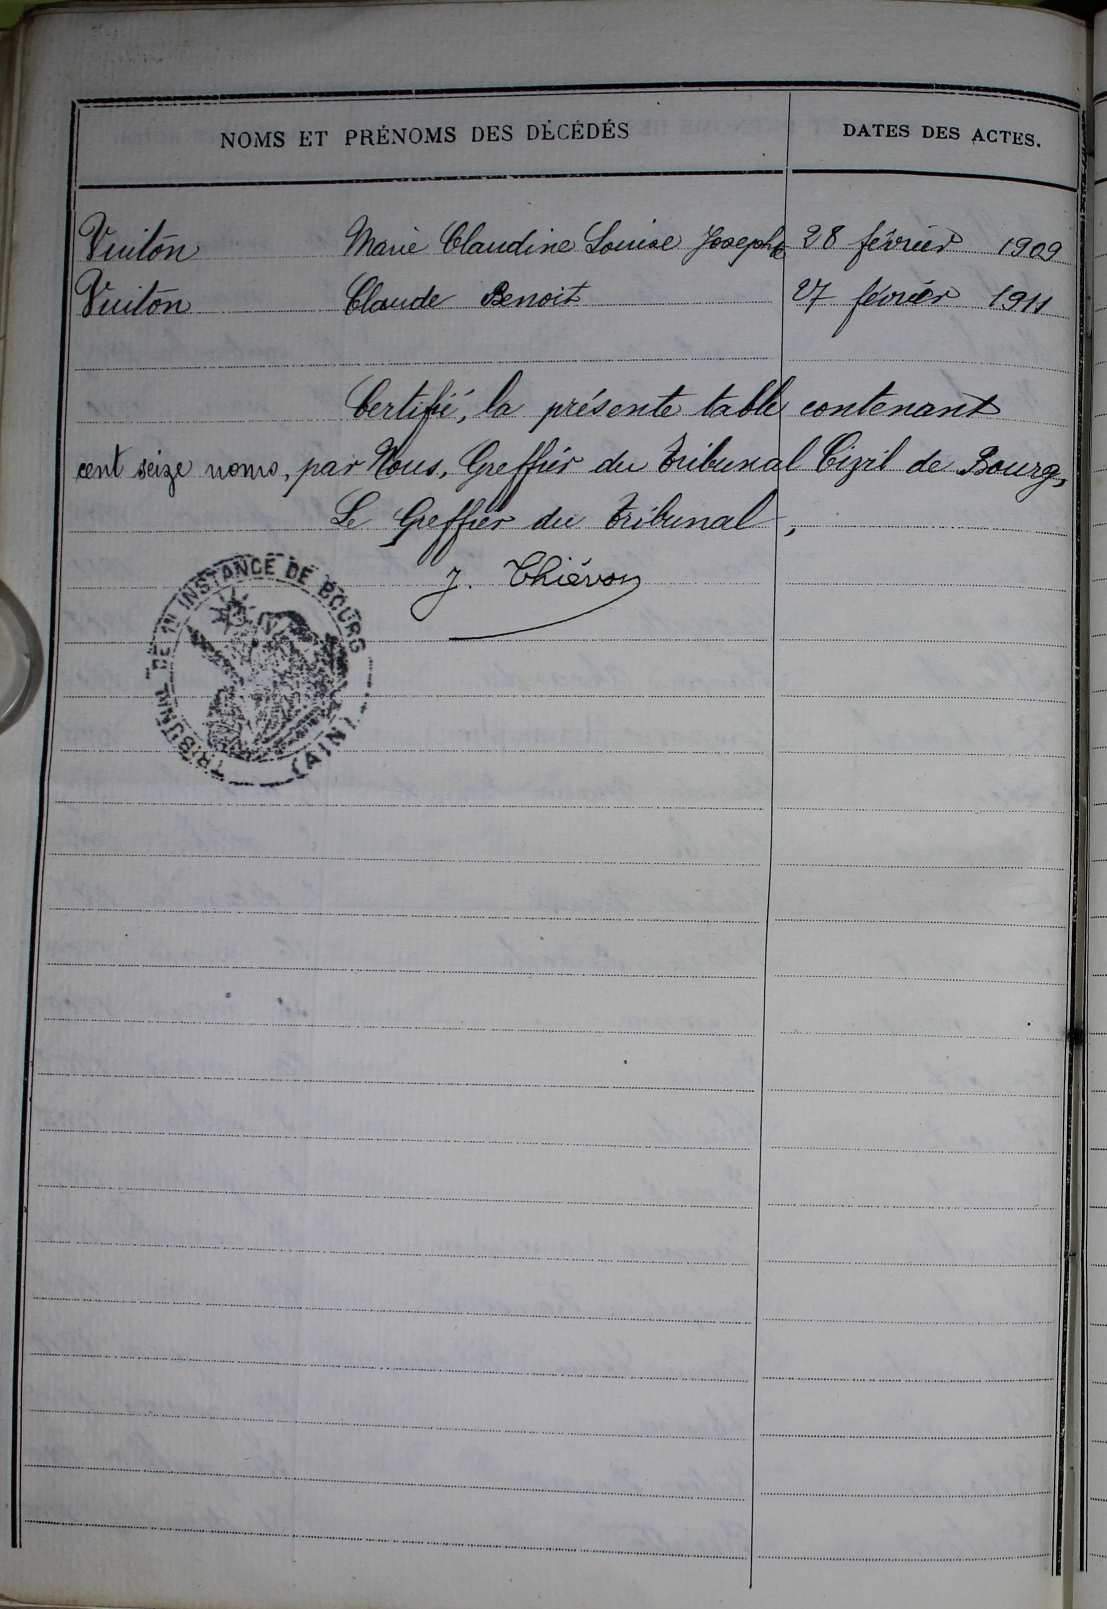 NOMS ET PRÉNOMS DES DÉCÉDÉS DATES DES ACTES.
Vuiton Marie Claudine Louise Josephte 28 février 1909
Vuiton Claude Benoit 27 février 1911
Certifié, la présente table contenant
cent seize noms, par Nous, Greffier du Tribunal Civil de Bourg,
Le Greffier du Tribunal,
J. Thiévon
TRIBUNAL DE 1re INSTANCE DE BOURG
(AIN)